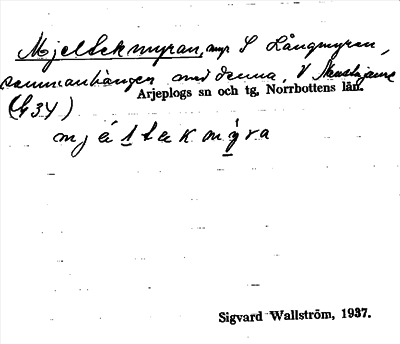 Mjeltekmyran, myr S Långmyren,
sammanhänger med denna, V
Arjeplogs sn och tg, Norrbottens län.
(G34)
mjältekmyra
Sigvard Wallström, 1937.